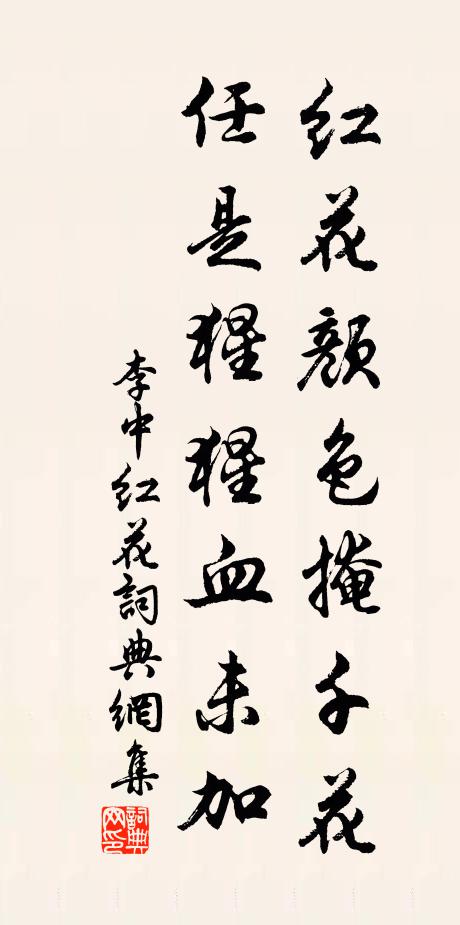 红花颜色掩千花
任是猩猩血未加
李中红花詞典網集
詞典网印